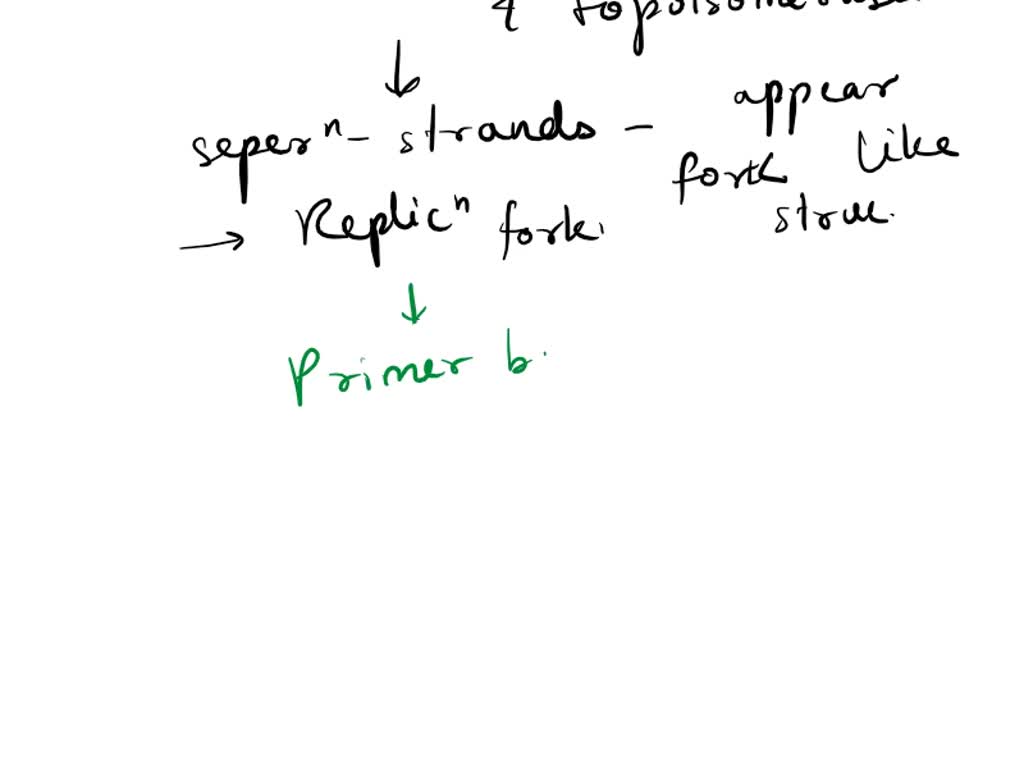 & topoisomerase
↓
seperⁿ- strands - appear
fork like
struc.
→ Replicⁿ fork.
↓
Primer b